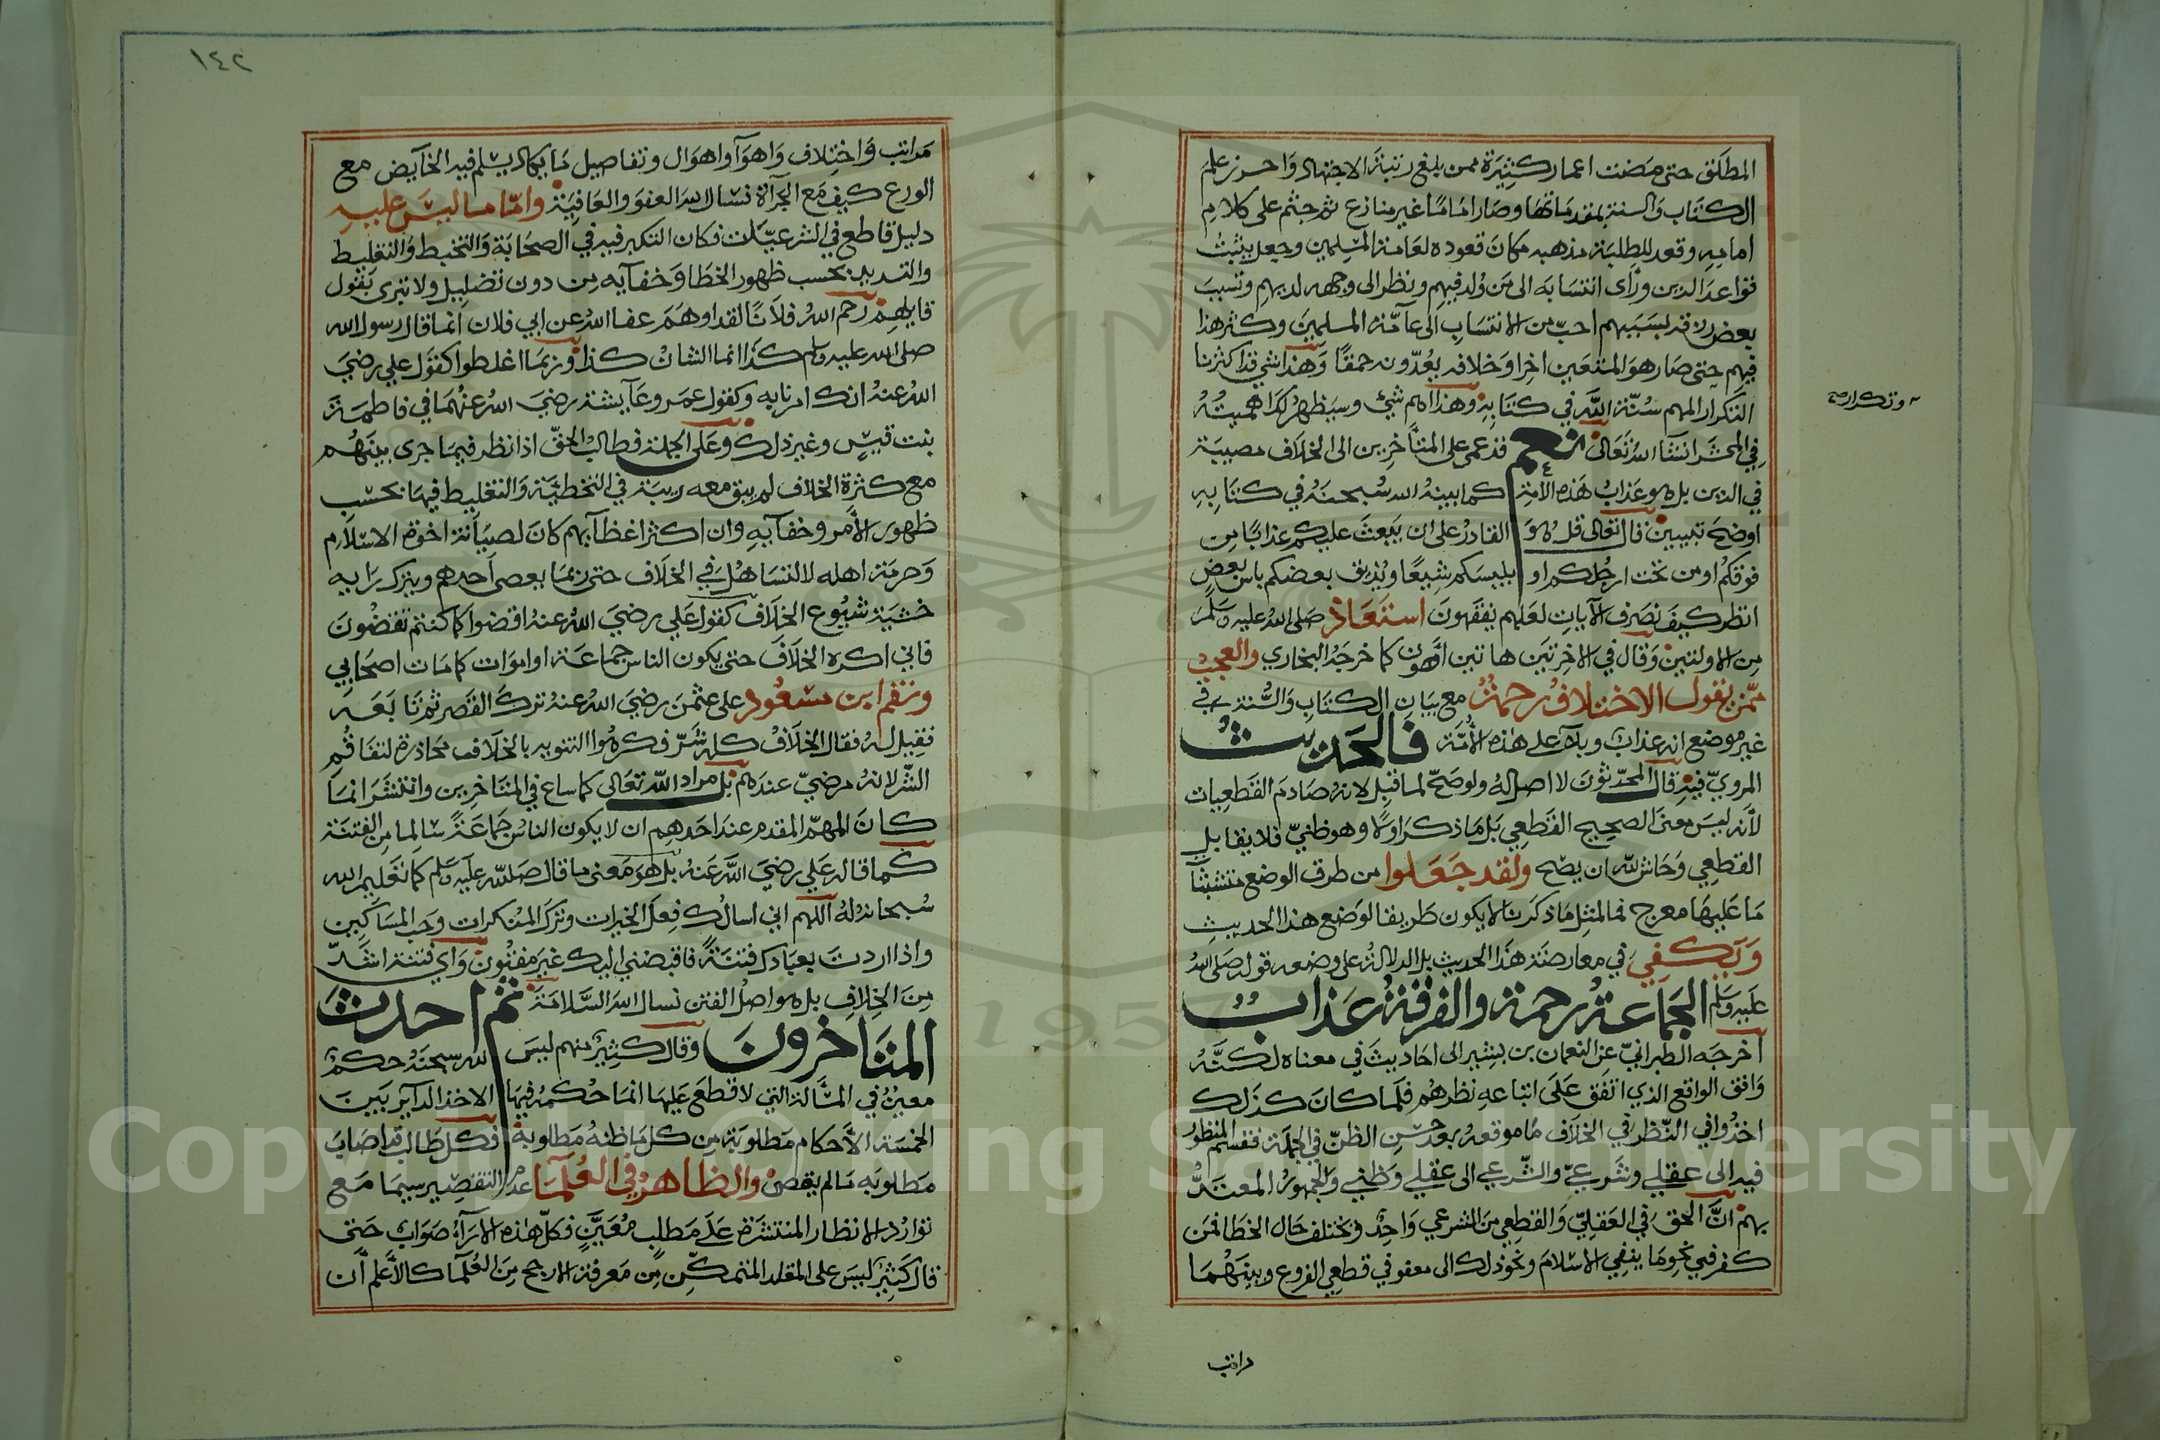 المطلق حتى مضت اعمار كثيرة ممن بلغ رتبة الاجتهاد واحرز علم
الكتاب والسنة بمقدماتها وصار اماما غير منازع ثم جثم على كلام
امامه وقعد للطلبة مذهبه مكان قعوده لعامة المسلمين وجعل يثبت
قواعد الدين ورأى انتسابه الى من ولد فيهم ونظر الى وجهه لديهم وتسبب
بعض رزقه بسببهم احب من الانتساب الى عامة المسلمين وكثر هذا
فيهم حتى صار هو المتعين اخرا وخلافه يعدونه حمقا وهذا شي قد اكثرنا
التكرار المهم سنة الله في كتابه وهذا اهم شيء وسيظهر لك اهميته
وتكراره
في المحشر انشا الله تعالى نعم قد عمي على المتأخرين الى الخلاف مصيبة
في الدين بل هو عذاب هذه الامة كما بينه الله سبحنه في كتابه
اوضح تبيين قال تعالى قل هو القادر على ان يبعث عليكم عذابا من
فوقكم او من تحت ارجلكم او يلبسكم شيعا ويذيق بعضكم باس بعض
انظر كيف نصرف الآيات لعلهم يفقهون استعاذ صلى الله عليه وسلم
من الاولتين وقال في الاخرتين هاتين أهون كما خرجه البخاري والعجب
ممن يقول الاختلاف رحمة مع بيان الكتاب والسنة في
غير موضع انه عذاب وبلاء على هذه الأمة فالحديث
المروي فيه قال المحدثون لا اصل له ولو صح لما قبل لانه صادم القطعيات
لأنه ليس معنى الصحيح القطعي بل ما ذكر اولا وهو ظني فلا يقابل
القطعي وحاش لله ان يصح ولقد جعلوا من طرق الوضع متشبثا
ما عليها معرج فما لمثل ما ذكرنا لا يكون طريقا لوضع هذا الحديث
ويكفي في معارضة هذا الحديث بل الدلالة على وضعه قوله صلى الله
عليه وسلم الجماعة رحمة والفرقة عذاب
اخرجه الطبراني عن النعمان بن بشير الى احاديث في معناه لكنه
وافق الواقع الذي اتفق على اتباعه نظرهم فلما كان كذلك
اخذوا في النظر في الخلاف ما موقعه بعد حسن الظن في الجملة فقسم المنظور
فيه الى عقلي وشرعي والشرعي الى عقلي وظني والجمهور المعتد
بهم ان الحق في العقلي والقطعي من الشرعي واحد وتختلف حال الخطا فمن
كفر في نحو ما ينفي الاسلام ونحو ذلك الى معفو في قطعي الفروع وبينهما
مراتب
١٤٢
مراتب واختلاف واهوآ واهوال وتفاصيل ما يكاد يسلم فيه الخايض مع
الورع كيف مع الجرآة نسال الله العفو والعافية واما ما ليس عليه
دليل قاطع في الشرعيات فكان النكير فيه في الصحابة والتخبط والتغليط
والتبديع بحسب ظهور الخطا وخفآيه من دون تضليل ولا تبرى بقول
قايلهم رحم الله فلانا لقد اوهم عفا الله عن ابي فلان انما قال رسول الله
صلى الله عليه وسلم كذا انما الشان كذا وربما اغلطوا كقول علي رضي
الله عنه انك امر تايه وكقول عمر وعآيشة رضي الله عنهما في فاطمة
بنت قيس وغير ذلك وعلى الجملة فطالب الحق اذا نظر فيما جرى بينهم
مع كثرة الخلاف لم يبق معه ريبة في التخطية والتغليط فيها بحسب
ظهور الأمر وخفآيه وان اكثر اغظآيهم كان لصيانة اخوة الاسلام
وحرمة اهله لا لتساهل في الخلاف حتى ربما يعصى احدهم ويترك رايه
خشية شيوع الخلاف كقول علي رضي الله عنه اقضوا كما كنتم تقضون
فاني اكره الخلاف حتى يكون الناس جماعة او اموات كما مات اصحابي
ونقم ابن مسعود على عثمن رضي الله عنه ترك القصر ثم تابعه
فقيل له فقال الخلاف كله شر فكرهوا التنويه بالخلاف محاذرة لتفاقم
الشر لا انه مرضي عندهم بل مراد الله تعالى كما ساع في المتاخرين وانتشر انما
كان المهم المقدم عند احدهم ان لا يكون الناس جماعة سالما من الفتنة
كما قاله علي رضي الله عنه بل هو معنى ما قال صلى الله عليه وسلم كما تعليم الله
سبحانه له اللهم اني اسالك فعل الخيرات وترك المنكرات وحب المساكين
واذا اردت بعبادك فتنة فاقبضني اليك غير مفتون واي فتنة اشد
من الخلاف بل هو اصل الفتن نسال الله السلامة ثم احدث
المتاخرون وقال كثير منهم ليس لله سبحنه حكم
معين في المسألة التي لا قطع عليها انما حكمه فيها الاخذ الداير بين
الخمسة الأحكام مطلوبة من كل ما ظنه مطلوبه فكل طالب قد اصاب
مطلوبه ما لم يقصر والظاهر في العلمآ عدم التقصير سيما مع
توارد الانظار المنتشرة على مطلب معين فكل هذه الارآء صواب حتى
قال كثير ليس على المقلد المتمكن من معرفة الارجح من العلمآ كالأعلم ان